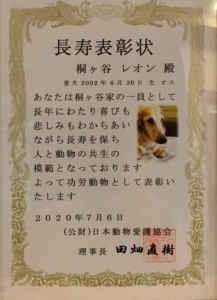 長寿表彰状
桐ヶ谷 レオン 殿
愛犬 2002年6月30日 生 オス
あなたは桐ヶ谷家の一員として
長年にわたり喜びも
悲しみもわかちあい
ながら長寿を保ち
人と動物の共生の
模範となっております
よって功労動物として表彰い
たします
2020年7月6日
(公財)日本動物愛護協会
理事長 田畑直樹